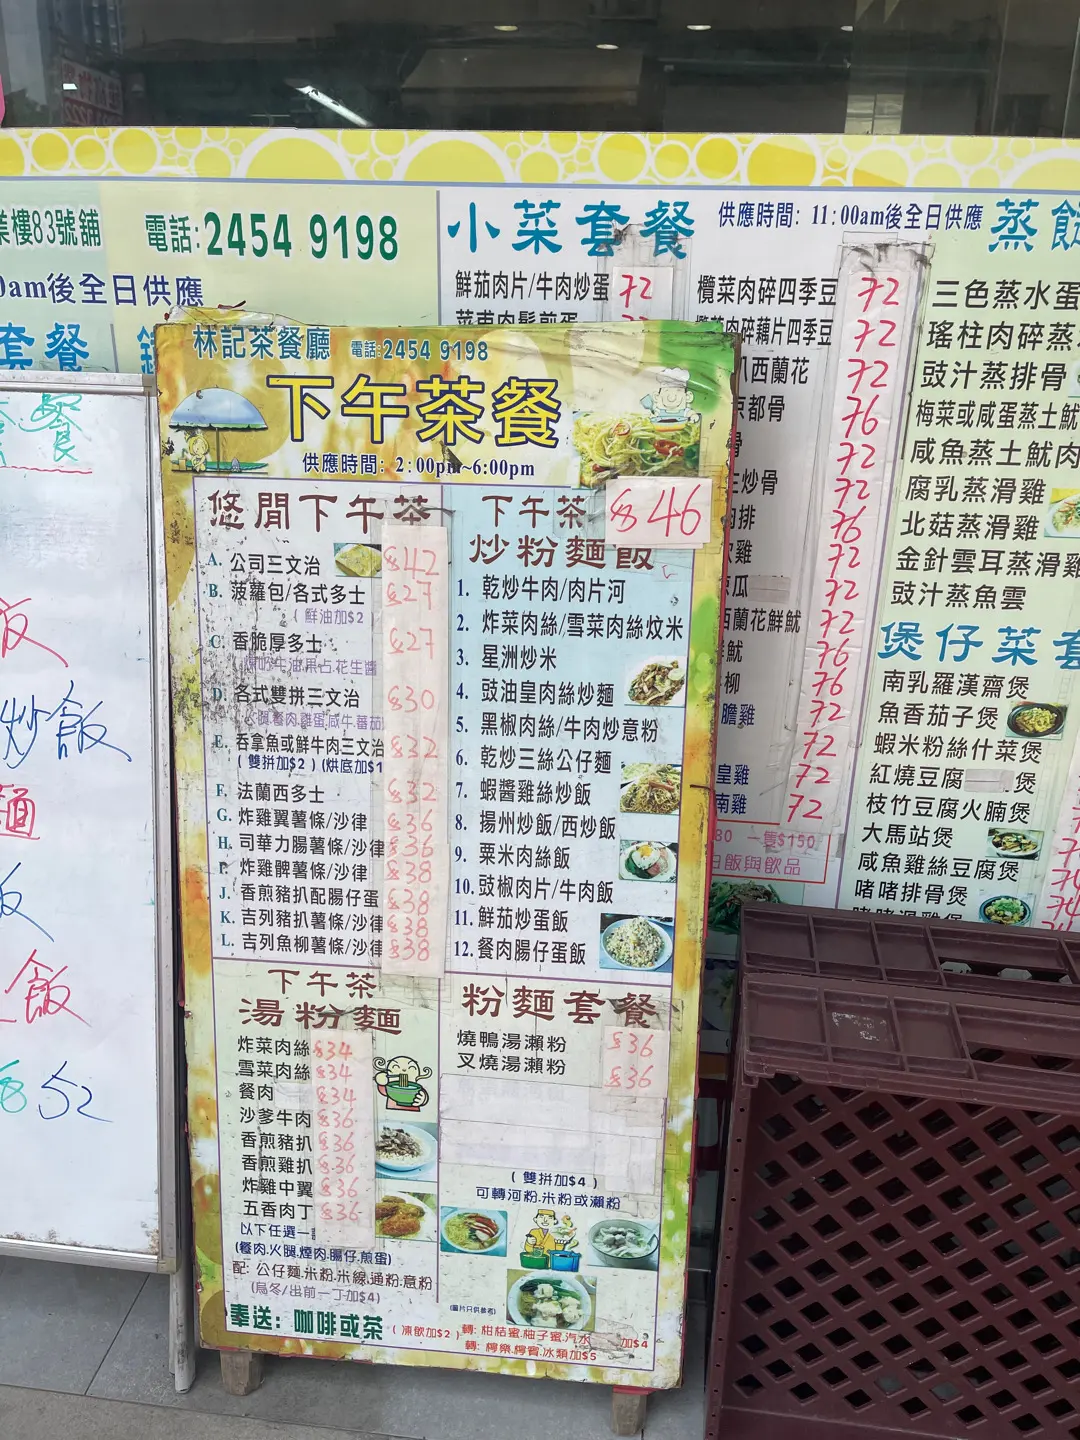 業樓83號舖
電話:2454 9198
0am後全日供應
套餐
小菜套餐
供應時間: 11:00am後全日供應
鮮茄肉片/牛肉炒蛋 72
欖菜肉碎四季豆 72
肉碎藕片四季豆 72
西蘭花 72
京都骨 76
骨 72
炒骨 72
排 76
雞 72
瓜 72
西蘭花鮮魷 72
魷 76
柳 76
膽雞 72
72
皇雞 72
南雞 72
80 一售$150
白飯與飲品
蒸
三色蒸水蛋
瑤柱肉碎蒸
豉汁蒸排骨
梅菜或咸蛋蒸土魷
咸魚蒸土魷肉
腐乳蒸滑雞
北菇蒸滑雞
金針雲耳蒸滑雞
豉汁蒸魚雲
煲仔菜套
南乳羅漢齋煲
魚香茄子煲
蝦米粉絲什菜煲
紅燒豆腐 煲
枝竹豆腐火腩煲
大馬站煲
咸魚雞絲豆腐煲
啫啫排骨煲
餐
飯
炒飯
麵
飯
飯
52
林記茶餐廳 電話:2454 9198
下午茶餐
供應時間: 2:00pm~6:00pm
悠閒下午茶
A. 公司三文治 $42
B. 菠蘿包/各式多士 $27
( 鮮油加$2
C. 香脆厚多士 $27
牛油果占,花生醬
D. 各式雙拼三文治 $30
餐肉,雞蛋,咸牛,蕃茄
E. 吞拿魚或鮮牛肉三文治 $32
( 雙拼加$2 ) (烘底加$1
F. 法蘭西多士 $32
G. 炸雞翼薯條/沙律 $36
H. 司華力腸薯條/沙律 $36
炸雞髀薯條/沙律 $38
J. 香煎豬扒配腸仔蛋 $38
K. 吉列豬扒薯條/沙律 $38
L. 吉列魚柳薯條/沙律 $38
下午茶 $46
炒粉麵飯
1. 乾炒牛肉/肉片河
2. 炸菜肉絲/雪菜肉絲炆米
3. 星洲炒米
4. 豉油皇肉絲炒麵
5. 黑椒肉絲/牛肉炒意粉
6. 乾炒三絲公仔麵
7. 蝦醬雞絲炒飯
8. 揚州炒飯/西炒飯
9. 粟米肉絲飯
10. 豉椒肉片/牛肉飯
11. 鮮茄炒蛋飯
12. 餐肉腸仔蛋飯
下午茶
湯粉麵
炸菜肉絲 $34
雪菜肉絲 $34
餐肉 $34
沙爹牛肉 $36
香煎豬扒 $36
香煎雞扒 $36
炸雞中翼 $36
五香肉丁 $36
以下任選一
(餐肉.火腿.煙肉.腸仔.煎蛋)
配: 公仔麵.米粉.米線.通粉.意粉
(烏冬/出前一丁加$4)
粉麵套餐
燒鴨湯瀨粉 $36
叉燒湯瀨粉 $36
( 雙拼加$4 )
可轉河粉.米粉或瀨粉
(圖片只供參考)
奉送: 咖啡或茶 ( 凍飲加$2 ) 轉: 柑桔蜜.柚子蜜.汽水 加$4
轉: 檸樂.檸賓.冰類加$5